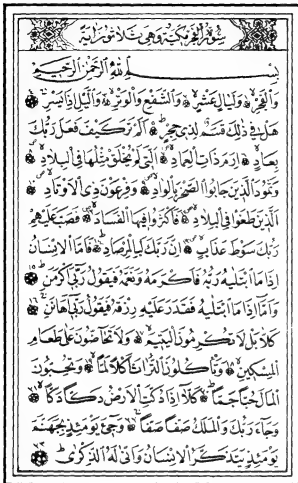 سورة الفجر مكية وهى ثلاثون اية
بِسْمِ اللّٰهِ الرَّحْمٰنِ الرَّحِيمِ
وَالْفَجْرِۙ وَلَيَالٍ عَشْرٍۙ وَالشَّفْعِ وَالْوَتْرِۙ وَالَّيْلِ اِذَا يَسْرِۚ
هَلْ فِى ذٰلِكَ قَسَمٌ لِذِى حِجْرٍۜ اَلَمْ تَرَ كَيْفَ فَعَلَ رَبُّكَ
بِعَادٍۙ اِرَمَ ذَاتِ الْعِمَادِۙ اَلَّتِى لَمْ يُخْلَقْ مِثْلُهَا فِى الْبِلَادِۙ
وَثَمُودَ الَّذِينَ جَابُوا الصَّخْرَ بِالْوَادِۙ وَفِرْعَوْنَ ذِى الْاَوْتَادِۙ
الَّذِينَ طَغَوْا فِى الْبِلَادِۙ فَاَكْثَرُوا فِيهَا الْفَسَادَۙ فَصَبَّ عَلَيْهِمْ
رَبُّكَ سَوْطَ عَذَابٍۚ اِنَّ رَبَّكَ لَبِالْمِرْصَادِۜ فَاَمَّا الْاِنْسَانُ
اِذَا مَا ابْتَلٰيهُ رَبُّهُ فَاَكْرَمَهُ وَنَعَّمَهُ فَيَقُولُ رَبِّى اَكْرَمَنِۜ
وَاَمَّا اِذَا مَا ابْتَلٰيهُ فَقَدَرَ عَلَيْهِ رِزْقَهُ فَيَقُولُ رَبِّى اَهَانَنِۚ
كَلَّا بَلْ لَا تُكْرِمُونَ الْيَتِيمَۙ وَلَا تَحَاضُّونَ عَلٰى طَعَامِ
الْمِسْكِينِۙ وَتَأْكُلُونَ التُّرَاثَ اَكْلًا لَمًّاۙ وَتُحِبُّونَ
الْمَالَ حُبًّا جَمًّاۜ كَلَّا اِذَا دُكَّتِ الْاَرْضُ دَكًّا دَكًّاۙ
وَجَاءَ رَبُّكَ وَالْمَلَكُ صَفًّا صَفًّاۚ وَجِىءَ يَوْمَئِذٍ بِجَهَنَّمَ
يَوْمَئِذٍ يَتَذَكَّرُ الْاِنْسَانُ وَاَنّٰى لَهُ الذِّكْرٰىۜ